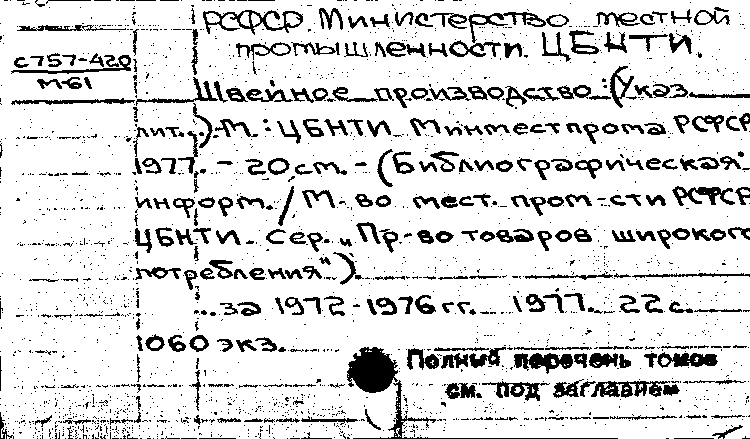 РСФСР. Министерство местной
промышленности. ЦБНТИ.
с757-420
М-61
Швейное производство: (Указ.
лит...) - М.: ЦБНТИ Минместпрома РСФСР
1977. - 20 см. - (Библиографическая
информ. / М-во мест. пром-сти РСФСР
ЦБНТИ. Сер. „Пр-во товаров широкого
потребления").
...за 1972-1976 гг. 1977. 22 с.
1060 экз.
Полный перечень томов
см. под заглавием